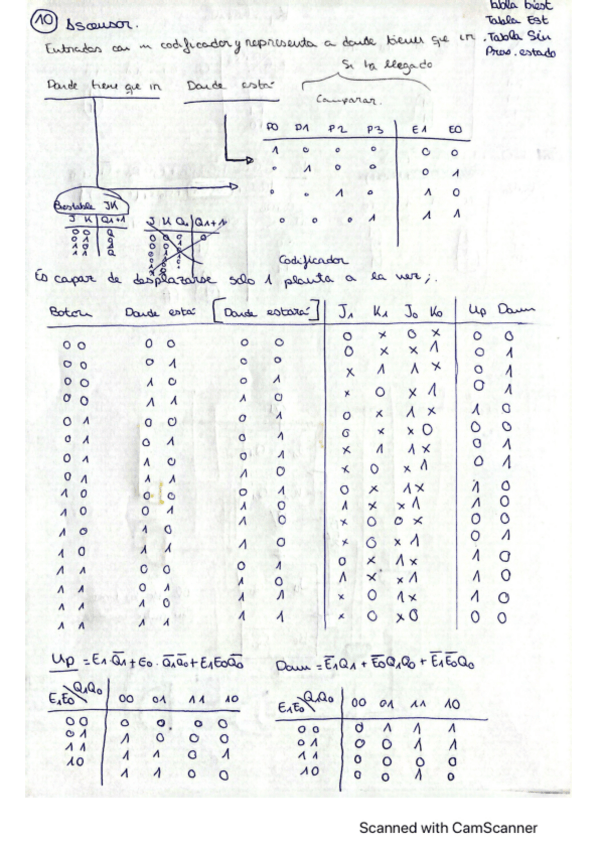 10 Ascensor.
Tabla biest
Tabla Est
Tabla Sin
Prox. estado
Entradas con un codificador y representa a donde tienes que ir.
Si ha llegado
Donde tiene que ir Donde está
Comparar.
P0 P1 P2 P3 E1 E0
1 0 0 0 0 0
0 1 0 0 0 1
0 0 1 0 1 0
0 0 0 1 1 1
Biestable JK
J K Qt+1
J K Qt Qt+1
Codificador
Es capaz de desplazarse solo 1 planta a la vez;
Boton Donde está [Donde estará] J1 K1 J0 K0 Up Down
0 0 0 0 0 0 0 x 0 x 0 0
0 0 0 1 0 0 0 x x 1 0 1
0 0 1 0 0 1 x 1 1 x 0 1
0 0 1 1 1 0 x 0 x 1 0 1
0 1 0 0 0 1 0 x 1 x 1 0
0 1 0 1 0 1 0 x x 0 0 0
0 1 1 0 0 1 x 1 1 x 0 1
0 1 1 1 1 0 x 0 x 1 0 1
1 0 0 0 0 1 0 x 1 x 1 0
1 0 0 1 1 0 1 x x 1 1 0
1 0 1 0 1 0 x 0 0 x 0 0
1 0 1 1 1 0 x 0 x 1 0 1
1 1 0 0 0 1 0 x 1 x 1 0
1 1 0 1 1 0 1 x x 1 1 0
1 1 1 0 1 1 x 0 1 x 1 0
1 1 1 1 1 1 x 0 x 0 0 0
Up = E1Q̅1 + E0·Q̅1Q̅0 + E1E0Q̅0 Down = E̅1Q1 + E̅0Q1Q0 + E̅1E̅0Q0
E1E0 Q1Q0 00 01 11 10
00 0 0 0 0
01 1 0 0 0
11 1 1 0 1
10 1 1 0 0
E1E0 Q1Q0 00 01 11 10
00 0 1 1 1
01 0 0 1 1
11 0 0 0 0
10 0 0 1 0
Scanned with CamScanner